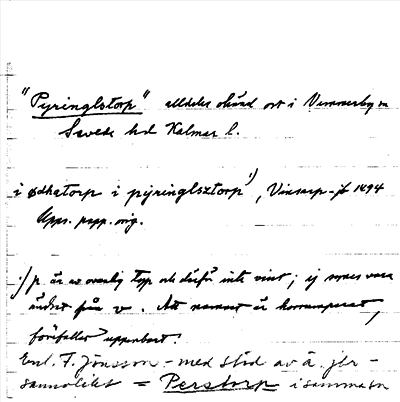 "Pyringlstorp" alldeles okänd ort i Vimmerby sn
Sevede hd Kalmar l.
i ødhatorp i pyringlsztorp¹), Vinsarp-jb 1494
Upps. papp. orig.
¹) p. är av ovanlig typ och därför inte visst; ej synes vara
ändrat från v. Att namnet är korrumperat,
förefaller uppenbart.
Enl. F. Jönsson - med stöd av ä. jbr -
sannolikt = Perstorp i samma sn